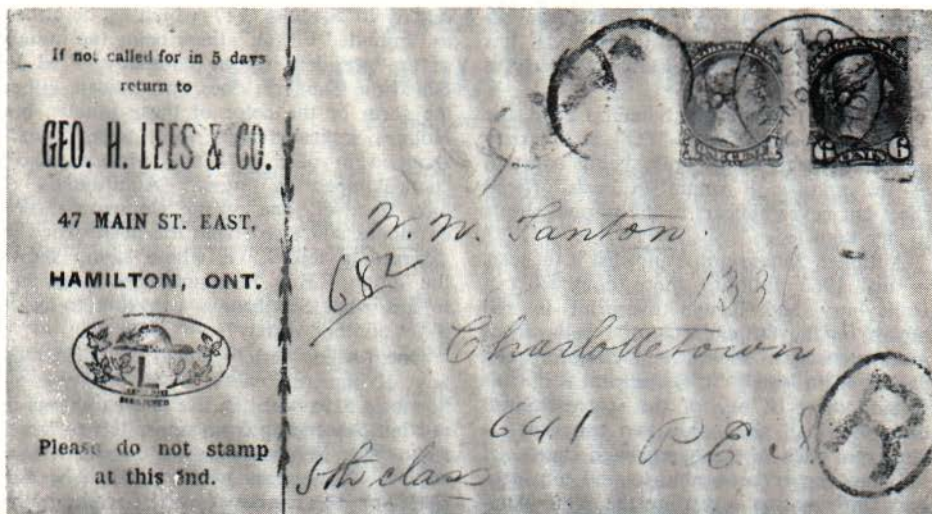 If not called for in 5 days
return to
GEO. H. LEES & CO.
47 MAIN ST. EAST,
HAMILTON, ONT.
L
Please do not stamp
at this end.
ONE CENT
6 CENTS 6
W. W. Tanton.
682
133
Charlottetown
641 P. E. I.
5th class
R